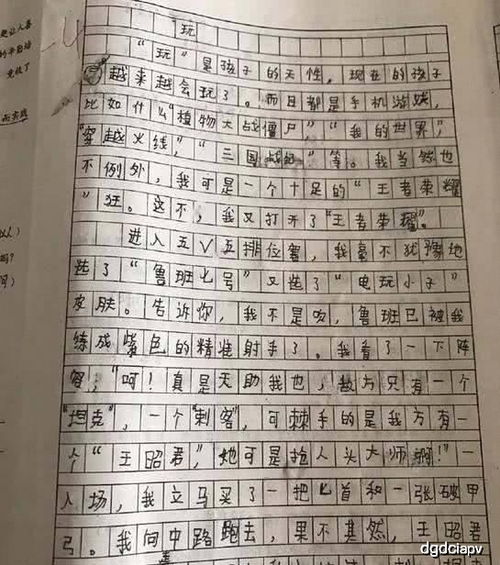 玩
"玩"是孩子的天性，现在的孩子
越来越会玩了。而且都是手机游戏，
比如什么"植物大战僵尸""我的世界"，
"穿越火线"，"三国战纪"等。我当然也
不例外，我可是一个十足的"王者荣耀
"狂。这不，我又打开了"王者荣耀"。
进入五V五排位赛，我毫不犹豫地
选了"鲁班七号"又选了"电玩小子"
皮肤。告诉你，我不是吹，鲁班已被我
练成紫色的精准射手了。我看了一下阵
容，"呵！真是天助我也，敌方只有一个
"坦克"，一个"刺客"，可棘手的是我方有一
个"王昭君"，她可是抢人头大师啊！"一
入场，我立马买了一把匕首和一张破甲
弓。我向中路跑去，果不其然，王昭君
dgdciapv